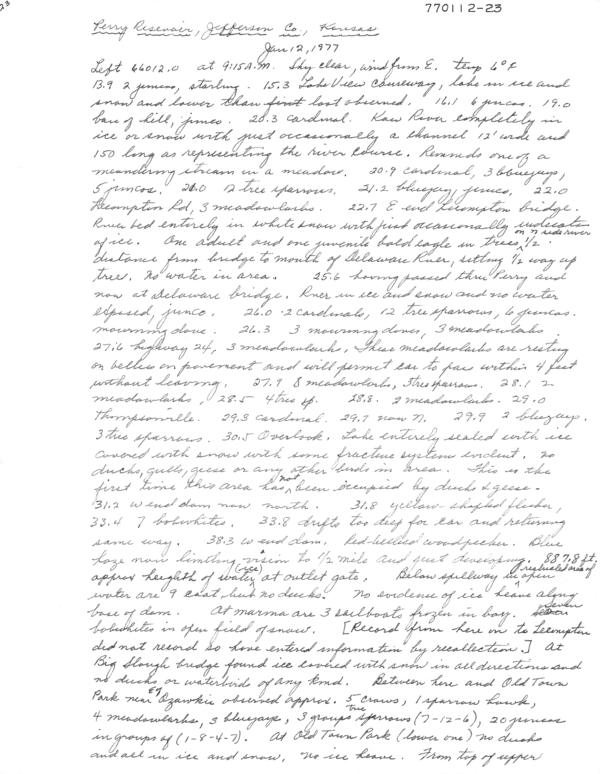 770112-23
23
Perry Resevoir, Jefferson Co., Kansas
Jan 12, 1977
Left 66012.0 at 9:15 A.M. Sky clear, wind from E. temp 6°F
13.9 2 juncos, starling. 15.3 Lake View Causeway, lake in ice and
snow and lower than first last observed. 16.1 6 juncos. 19.0
base of hill, junco. 20.3 cardinal. Kaw River completely in
ice or snow with just occasionally a channel 12' wide and
150 long as representing the river course. Reminds one of a
meandering stream in a meadow. 20.9 cardinal, 3 bluejays,
5 juncos. 21.0 12 tree sparrows. 21.2 bluejay, junco, 22.0
Lecompton Rd, 3 meadowlarks. 22.7 E end Lecompton bridge.
River bed entirely in white snow with just occasionally indication
of ice. One adult and one juvenile bald eagle in trees on N side river 1/2
distance from bridge to mouth of Delaware River, sitting 1/2 way up
tree. No water in area. 25.6 having passed thru Perry and
now at Delaware bridge. River in ice and snow and no water
exposed, junco. 26.0 2 cardinals, 12 tree sparrows, 6 juncos.
mourning dove. 26.3 3 mourning doves, 3 meadowlarks
27.6 highway 24, 3 meadowlarks, These meadowlarks are resting
on bellies on pavement and will permit car to pass within 4 feet
without leaving. 27.9 8 meadowlarks, 3 tree sparrows. 28.1 2
meadowlarks, 28.5 4 tree sp. 28.8. 2 meadowlarks. 29.0
Thompsonville. 29.3 cardinal. 29.7 now N. 29.9 2 bluejays.
3 tree sparrows. 30.5 Overlook. Lake entirely sealed with ice
covered with snow with some fracture system evident. No
ducks, gulls, geese or any other birds in area. This is the
first time this area has not been occupied by ducks & geese.
31.2 W end dam now north. 31.8 yellow-shafted flicker,
33.4 7 bobwhites. 33.8 drifts too deep for car and returning
same way. 38.3 W end dam, Red-bellied woodpecker. Blue
haze now limiting vision to 1/2 mile and just developing. 887.8 ft.
approx heighth of water (ice) at outlet gate. Below spillway in restricted area of open
water are 9 coot, but no ducks. No evidence of ice heave along
base of dam. At marina are 3 sailboats frozen in bay. seven
bobwhites in open field of snow. [Record from here on to Lecompton
did not record so have entered information by recollection.] At
Big Slough bridge found ice covered with snow in all directions and
no ducks or waterbirds of any kind. Between here and Old Town
Park near Ozawkie observed approx. 5 crows, 1 sparrow hawk,
4 meadowlarks, 3 bluejays, 3 groups tree sparrows (7-12-6), 20 juncos
in groups of (1-8-4-7). At Old Town Park (lower one) no ducks
and all in ice and snow, no ice heave. From top of upper